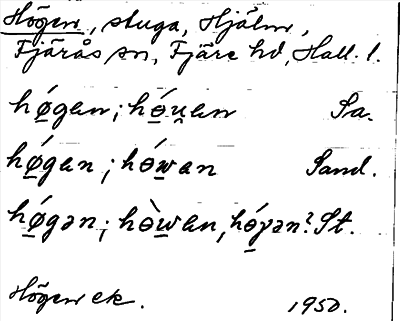 Högen, stuga, Hjälm,
Fjärås sn, Fjäre hd, Hall. l.
hǿ̠gan; hɵ̠́u̯an Sa.
hǿ̠gan; hɵ́w̠an Sand.
hǿ̠gən; hɵ̀w̠an, hɵ̠́γən? St.
Högen ek.
1950.